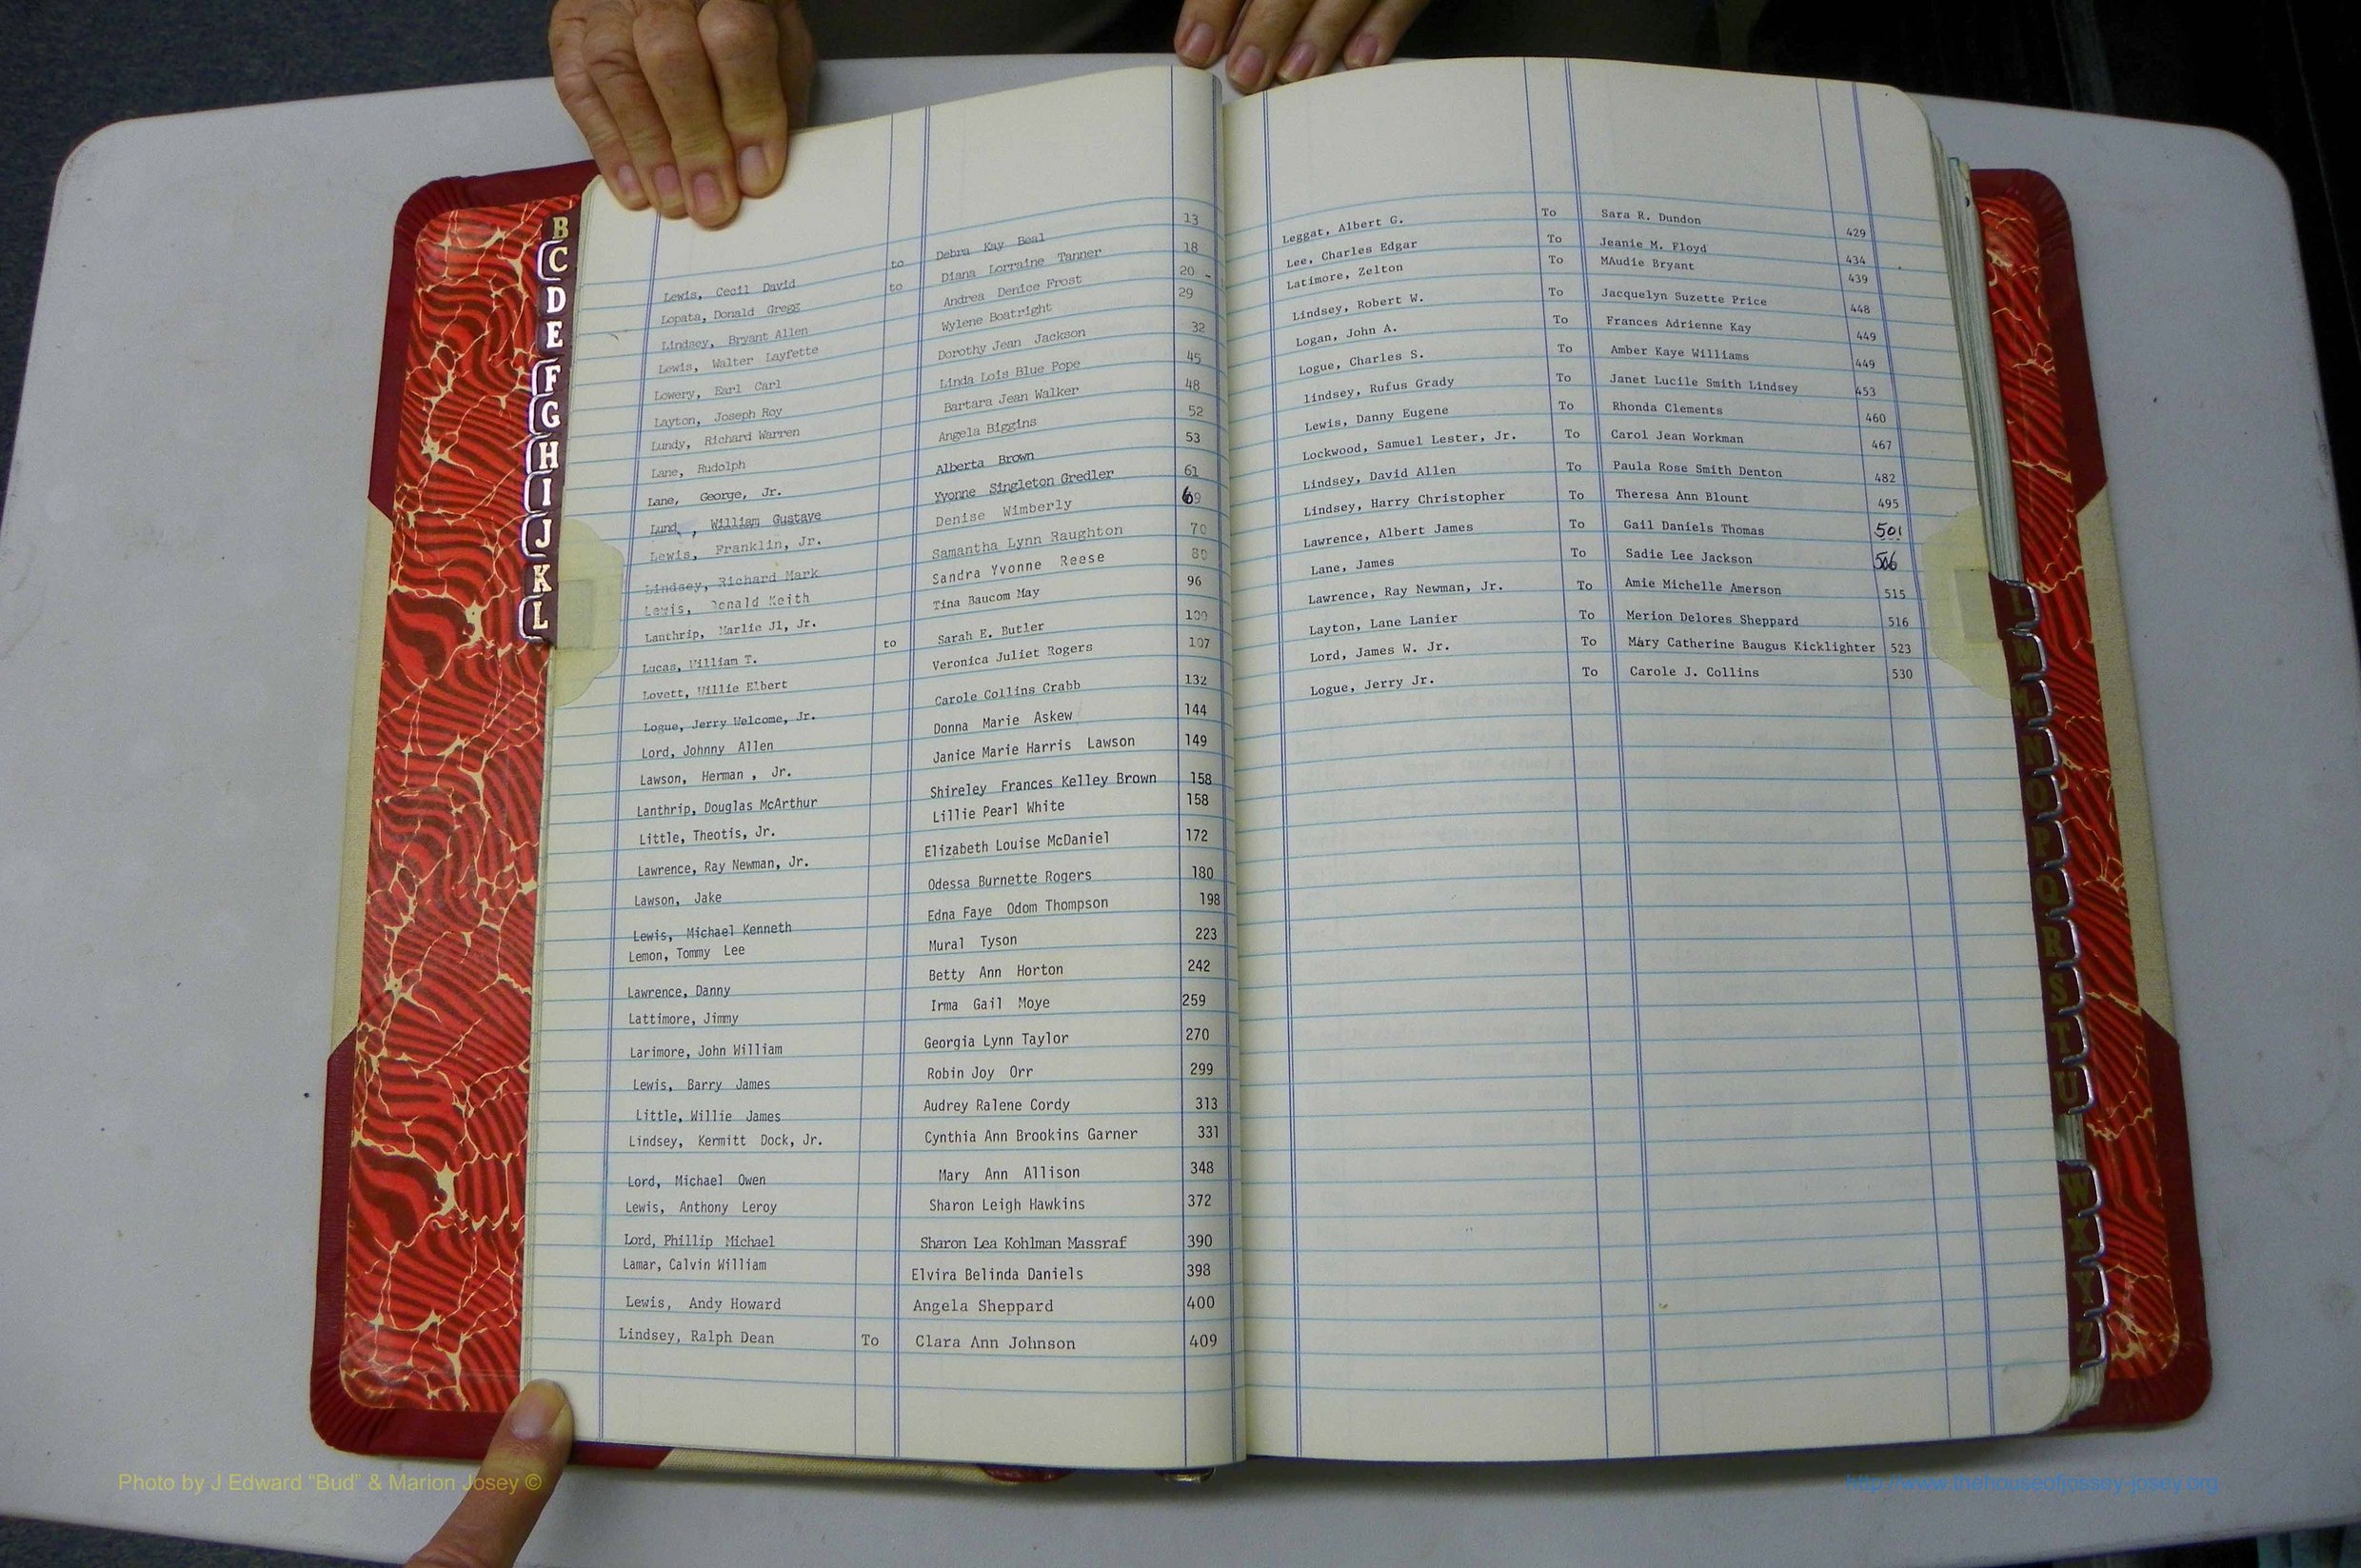 B
C
D
E
F
G
H
I
J
K
L
Lewis, Cecil David to Debra Kay Beal 13
Lopata, Donald Gregg to Diana Lorraine Tanner 18
Lindsey, Bryant Allen Andrea Denice Frost 20 -
Lewis, Walter Layfette Wylene Boatright 29
Lowery, Earl Carl Dorothy Jean Jackson 32
Layton, Joseph Roy Linda Lois Blue Pope 45
Lundy, Richard Warren Bartara Jean Walker 48
Lane, Rudolph Angela Biggins 52
Lane, George, Jr. Alberta Brown 53
Lund, William Gustave Yvonne Singleton Gredler 61
Lewis, Franklin, Jr. Denise Wimberly 69
Lindsey, Richard Mark Samantha Lynn Raughton 70
Lewis, Donald Keith Sandra Yvonne Reese 80
Lanthrip, Marlie Jl, Jr. Tina Baucom May 96
Lucas, William T. to Sarah E. Butler 100
Lovett, Willie Elbert Veronica Juliet Rogers 107
Logue, Jerry Welcome, Jr. Carole Collins Crabb 132
Lord, Johnny Allen Donna Marie Askew 144
Lawson, Herman , Jr. Janice Marie Harris Lawson 149
Lanthrip, Douglas McArthur Shireley Frances Kelley Brown 158
Little, Theotis, Jr. Lillie Pearl White 158
Lawrence, Ray Newman, Jr. Elizabeth Louise McDaniel 172
Lawson, Jake Odessa Burnette Rogers 180
Lewis, Michael Kenneth Edna Faye Odom Thompson 198
Lemon, Tommy Lee Mural Tyson 223
Lawrence, Danny Betty Ann Horton 242
Lattimore, Jimmy Irma Gail Moye 259
Larimore, John William Georgia Lynn Taylor 270
Lewis, Barry James Robin Joy Orr 299
Little, Willie James Audrey Ralene Cordy 313
Lindsey, Kermitt Dock, Jr. Cynthia Ann Brookins Garner 331
Lord, Michael Owen Mary Ann Allison 348
Lewis, Anthony Leroy Sharon Leigh Hawkins 372
Lord, Phillip Michael Sharon Lea Kohlman Massraf 390
Lamar, Calvin William Elvira Belinda Daniels 398
Lewis, Andy Howard Angela Sheppard 400
Lindsey, Ralph Dean To Clara Ann Johnson 409
Leggat, Albert G. To Sara R. Dundon 429
Lee, Charles Edgar To Jeanie M. Floyd 434
Latimore, Zelton To MAudie Bryant 439
Lindsey, Robert W. To Jacquelyn Suzette Price 448
Logan, John A. To Frances Adrienne Kay 449
Logue, Charles S. To Amber Kaye Williams 449
lindsey, Rufus Grady To Janet Lucile Smith Lindsey 453
Lewis, Danny Eugene To Rhonda Clements 460
Lockwood, Samuel Lester, Jr. To Carol Jean Workman 467
Lindsey, David Allen To Paula Rose Smith Denton 482
Lindsey, Harry Christopher To Theresa Ann Blount 495
Lawrence, Albert James To Gail Daniels Thomas 501
Lane, James To Sadie Lee Jackson 506
Lawrence, Ray Newman, Jr. To Amie Michelle Amerson 515
Layton, Lane Lanier To Merion Delores Sheppard 516
Lord, James W. Jr. To Mary Catherine Baugus Kicklighter 523
Logue, Jerry Jr. To Carole J. Collins 530
L
M
Mc
N
O
P
Q
R
S
T
U
W
X
Y
Z
Photo by J Edward “Bud” & Marion Josey ©
http://www.thehouseofjossey-josey.org